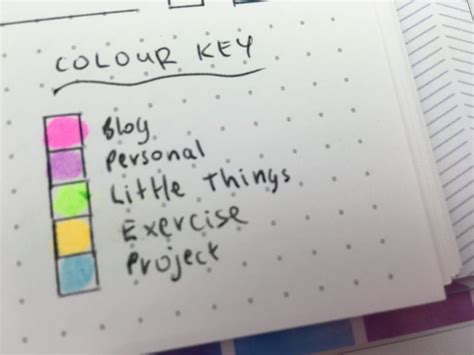 COLOUR KEY
Blog
Personal
Little Things
Exercise
Project